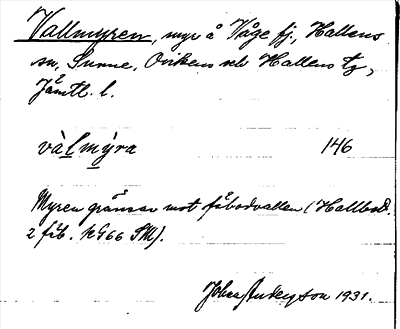 Vallmyren, myr å Våge fj., Hallens
sn, Sunne, Ovikens och Hallens tg,
Jämtl. l.
vàlmýra 146
Myren gränsar mot fäbodvallen (Hallbod.
2 fäb. NG66 SM).
John Anderson 1931.